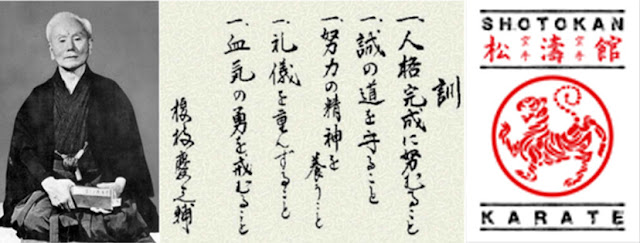 訓
一、人格完成に努むること
一、誠の道を守ること
一、努力の精神を養うこと
一、礼儀を重んずること
一、血気の勇を戒むること
榎枝慶之輔
SHOTOKAN
松空手濤空手館
KARATE